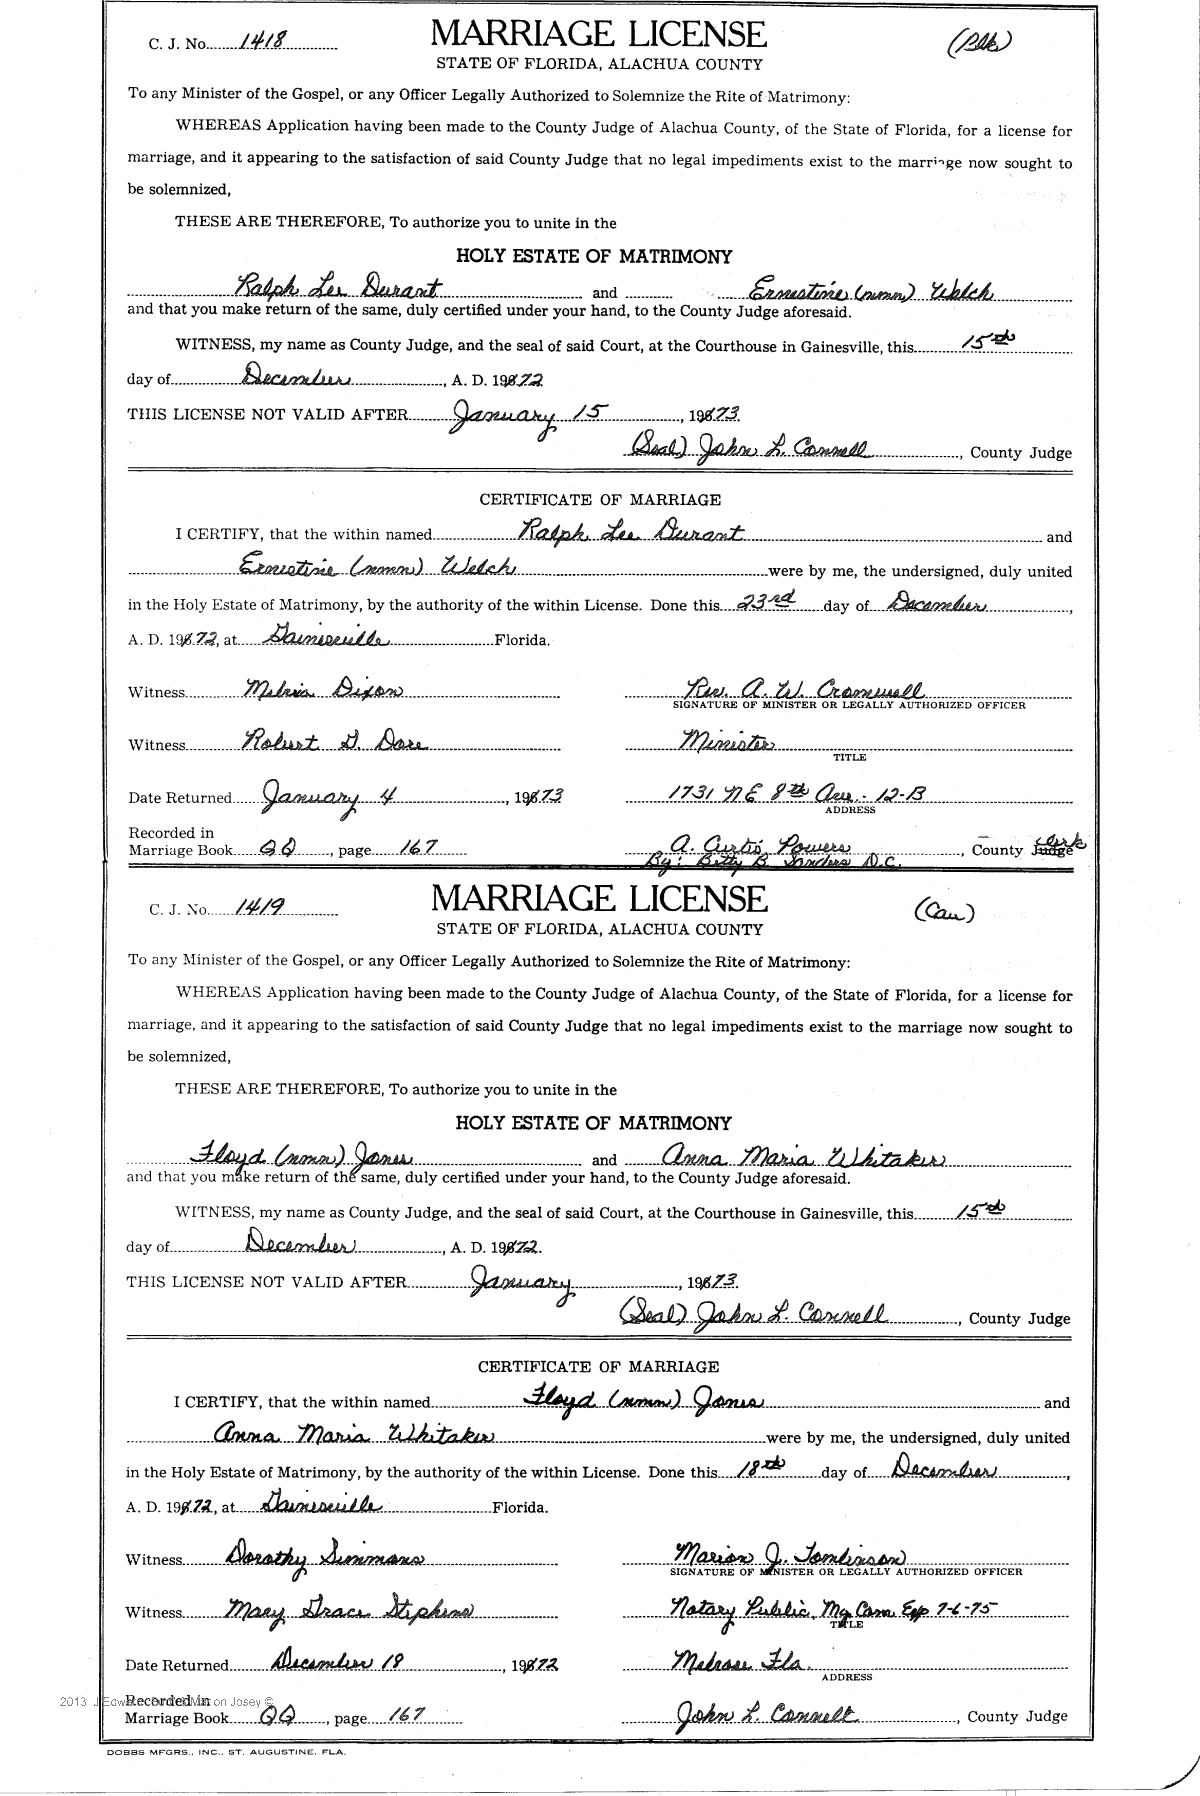 C. J. No. 1418
MARRIAGE LICENSE
(Blk)
STATE OF FLORIDA, ALACHUA COUNTY
To any Minister of the Gospel, or any Officer Legally Authorized to Solemnize the Rite of Matrimony:
WHEREAS Application having been made to the County Judge of Alachua County, of the State of Florida, for a license for
marriage, and it appearing to the satisfaction of said County Judge that no legal impediments exist to the marriage now sought to
be solemnized,
THESE ARE THEREFORE, To authorize you to unite in the
HOLY ESTATE OF MATRIMONY
Ralph Lee Durant and Ernestine (nmn) Welch
and that you make return of the same, duly certified under your hand, to the County Judge aforesaid.
WITNESS, my name as County Judge, and the seal of said Court, at the Courthouse in Gainesville, this 15th
day of December, A. D. 1972
THIS LICENSE NOT VALID AFTER January 15, 1973.
(Seal) John L. Connell, County Judge
CERTIFICATE OF MARRIAGE
I CERTIFY, that the within named Ralph Lee Durant and
Ernestine (nmn) Welch were by me, the undersigned, duly united
in the Holy Estate of Matrimony, by the authority of the within License. Done this 23rd day of December,
A. D. 1972, at Gainesville Florida.
Witness Dixon Rev. A. W. Cromwell
SIGNATURE OF MINISTER OR LEGALLY AUTHORIZED OFFICER
Witness Robert G. Minister
TITLE
Date Returned January 4, 1973 1731 NE 8th Ave. - 12-B
ADDRESS
Recorded in
Marriage Book QQ, page 167 A. Curtis Powers, County Judge Clerk
By: Betty B. Sanders D.C.
C. J. No. 1419
MARRIAGE LICENSE
(Cau)
STATE OF FLORIDA, ALACHUA COUNTY
To any Minister of the Gospel, or any Officer Legally Authorized to Solemnize the Rite of Matrimony:
WHEREAS Application having been made to the County Judge of Alachua County, of the State of Florida, for a license for
marriage, and it appearing to the satisfaction of said County Judge that no legal impediments exist to the marriage now sought to
be solemnized,
THESE ARE THEREFORE, To authorize you to unite in the
HOLY ESTATE OF MATRIMONY
Floyd (nmn) Jones and Anna Maria Whitaker
and that you make return of the same, duly certified under your hand, to the County Judge aforesaid.
WITNESS, my name as County Judge, and the seal of said Court, at the Courthouse in Gainesville, this 15th
day of December, A. D. 1972.
THIS LICENSE NOT VALID AFTER January, 1973.
(Seal) John L. Connell, County Judge
CERTIFICATE OF MARRIAGE
I CERTIFY, that the within named Floyd (nmn) Jones and
Anna Maria Whitaker were by me, the undersigned, duly united
in the Holy Estate of Matrimony, by the authority of the within License. Done this 18th day of December,
A. D. 1972, at Gainesville Florida.
Witness Dorothy Simmons Marion J. Tomlinson
SIGNATURE OF MINISTER OR LEGALLY AUTHORIZED OFFICER
Witness Mary Grace Stephens Notary Public, My Com Exp 7-6-75
TITLE
Date Returned December 19, 1972 Melrose Fla.
ADDRESS
Recorded in
Marriage Book QQ, page 167 John L. Connell, County Judge
2013 Josey ©
DOBBS MFGRS., INC., ST. AUGUSTINE, FLA.